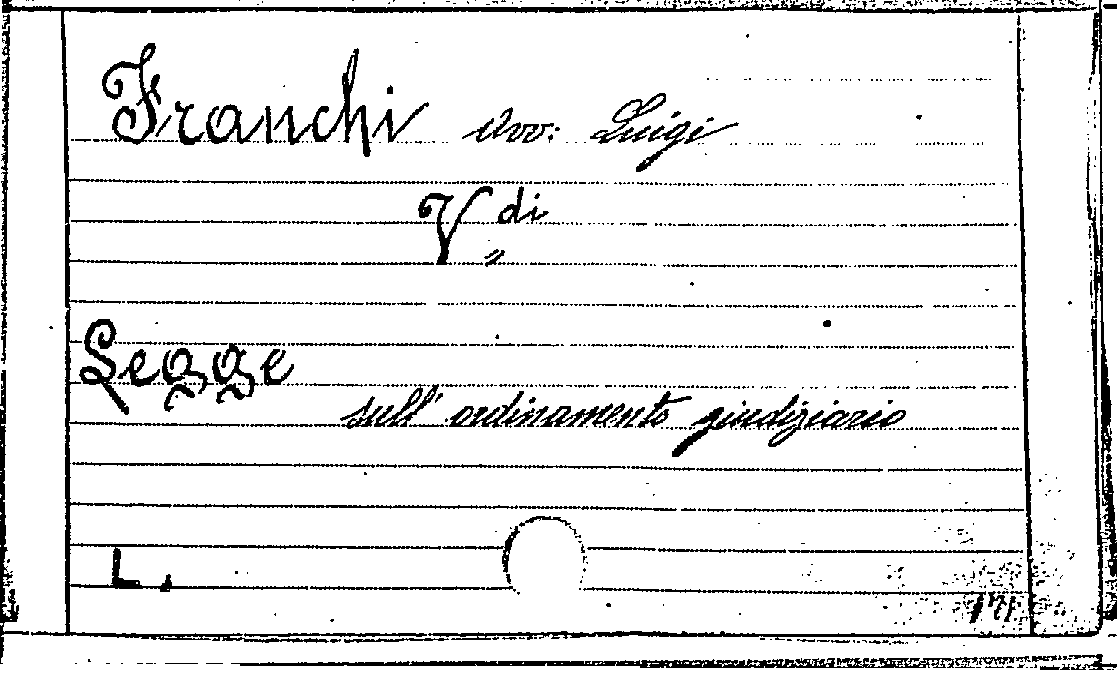 Franchi Avv: Luigi
V di
Legge
sull' ordinamento giudiziario
L.
171